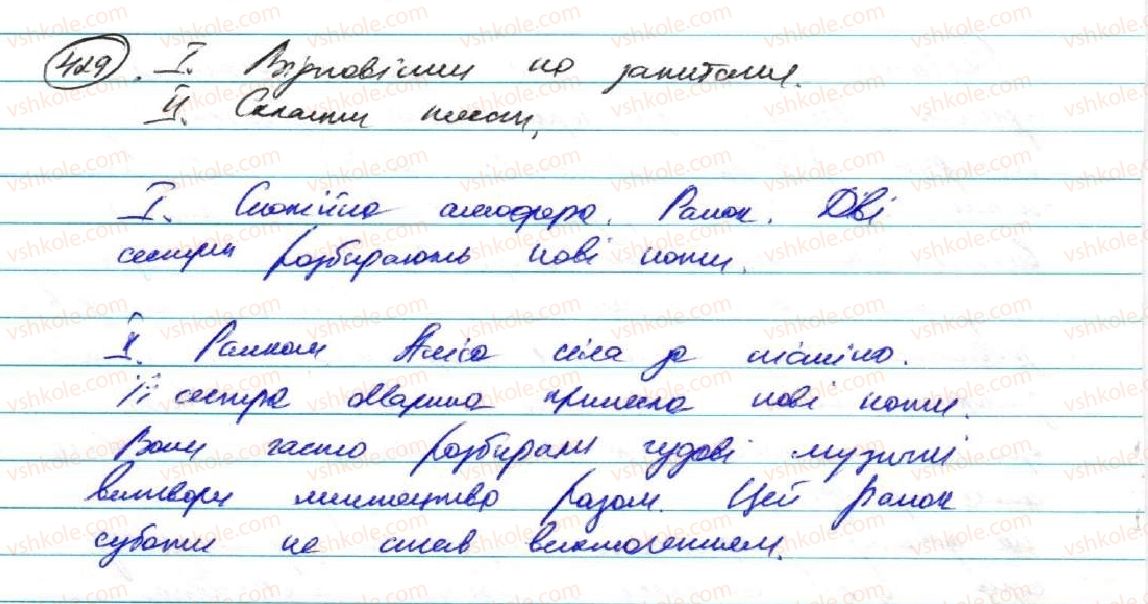 429. I. Відповісти на запитання.
II. Скласти текст.
I. Спокійна атмосфера. Ранок. Дві
сестри розбирають нові ноти.
II. Ранком Аліса сіла за піаніно.
Її сестра Марина принесла нові ноти.
Вони часто розбирали чудові музичні
витвори мистецтва разом. Цей ранок
суботи не став виключенням.